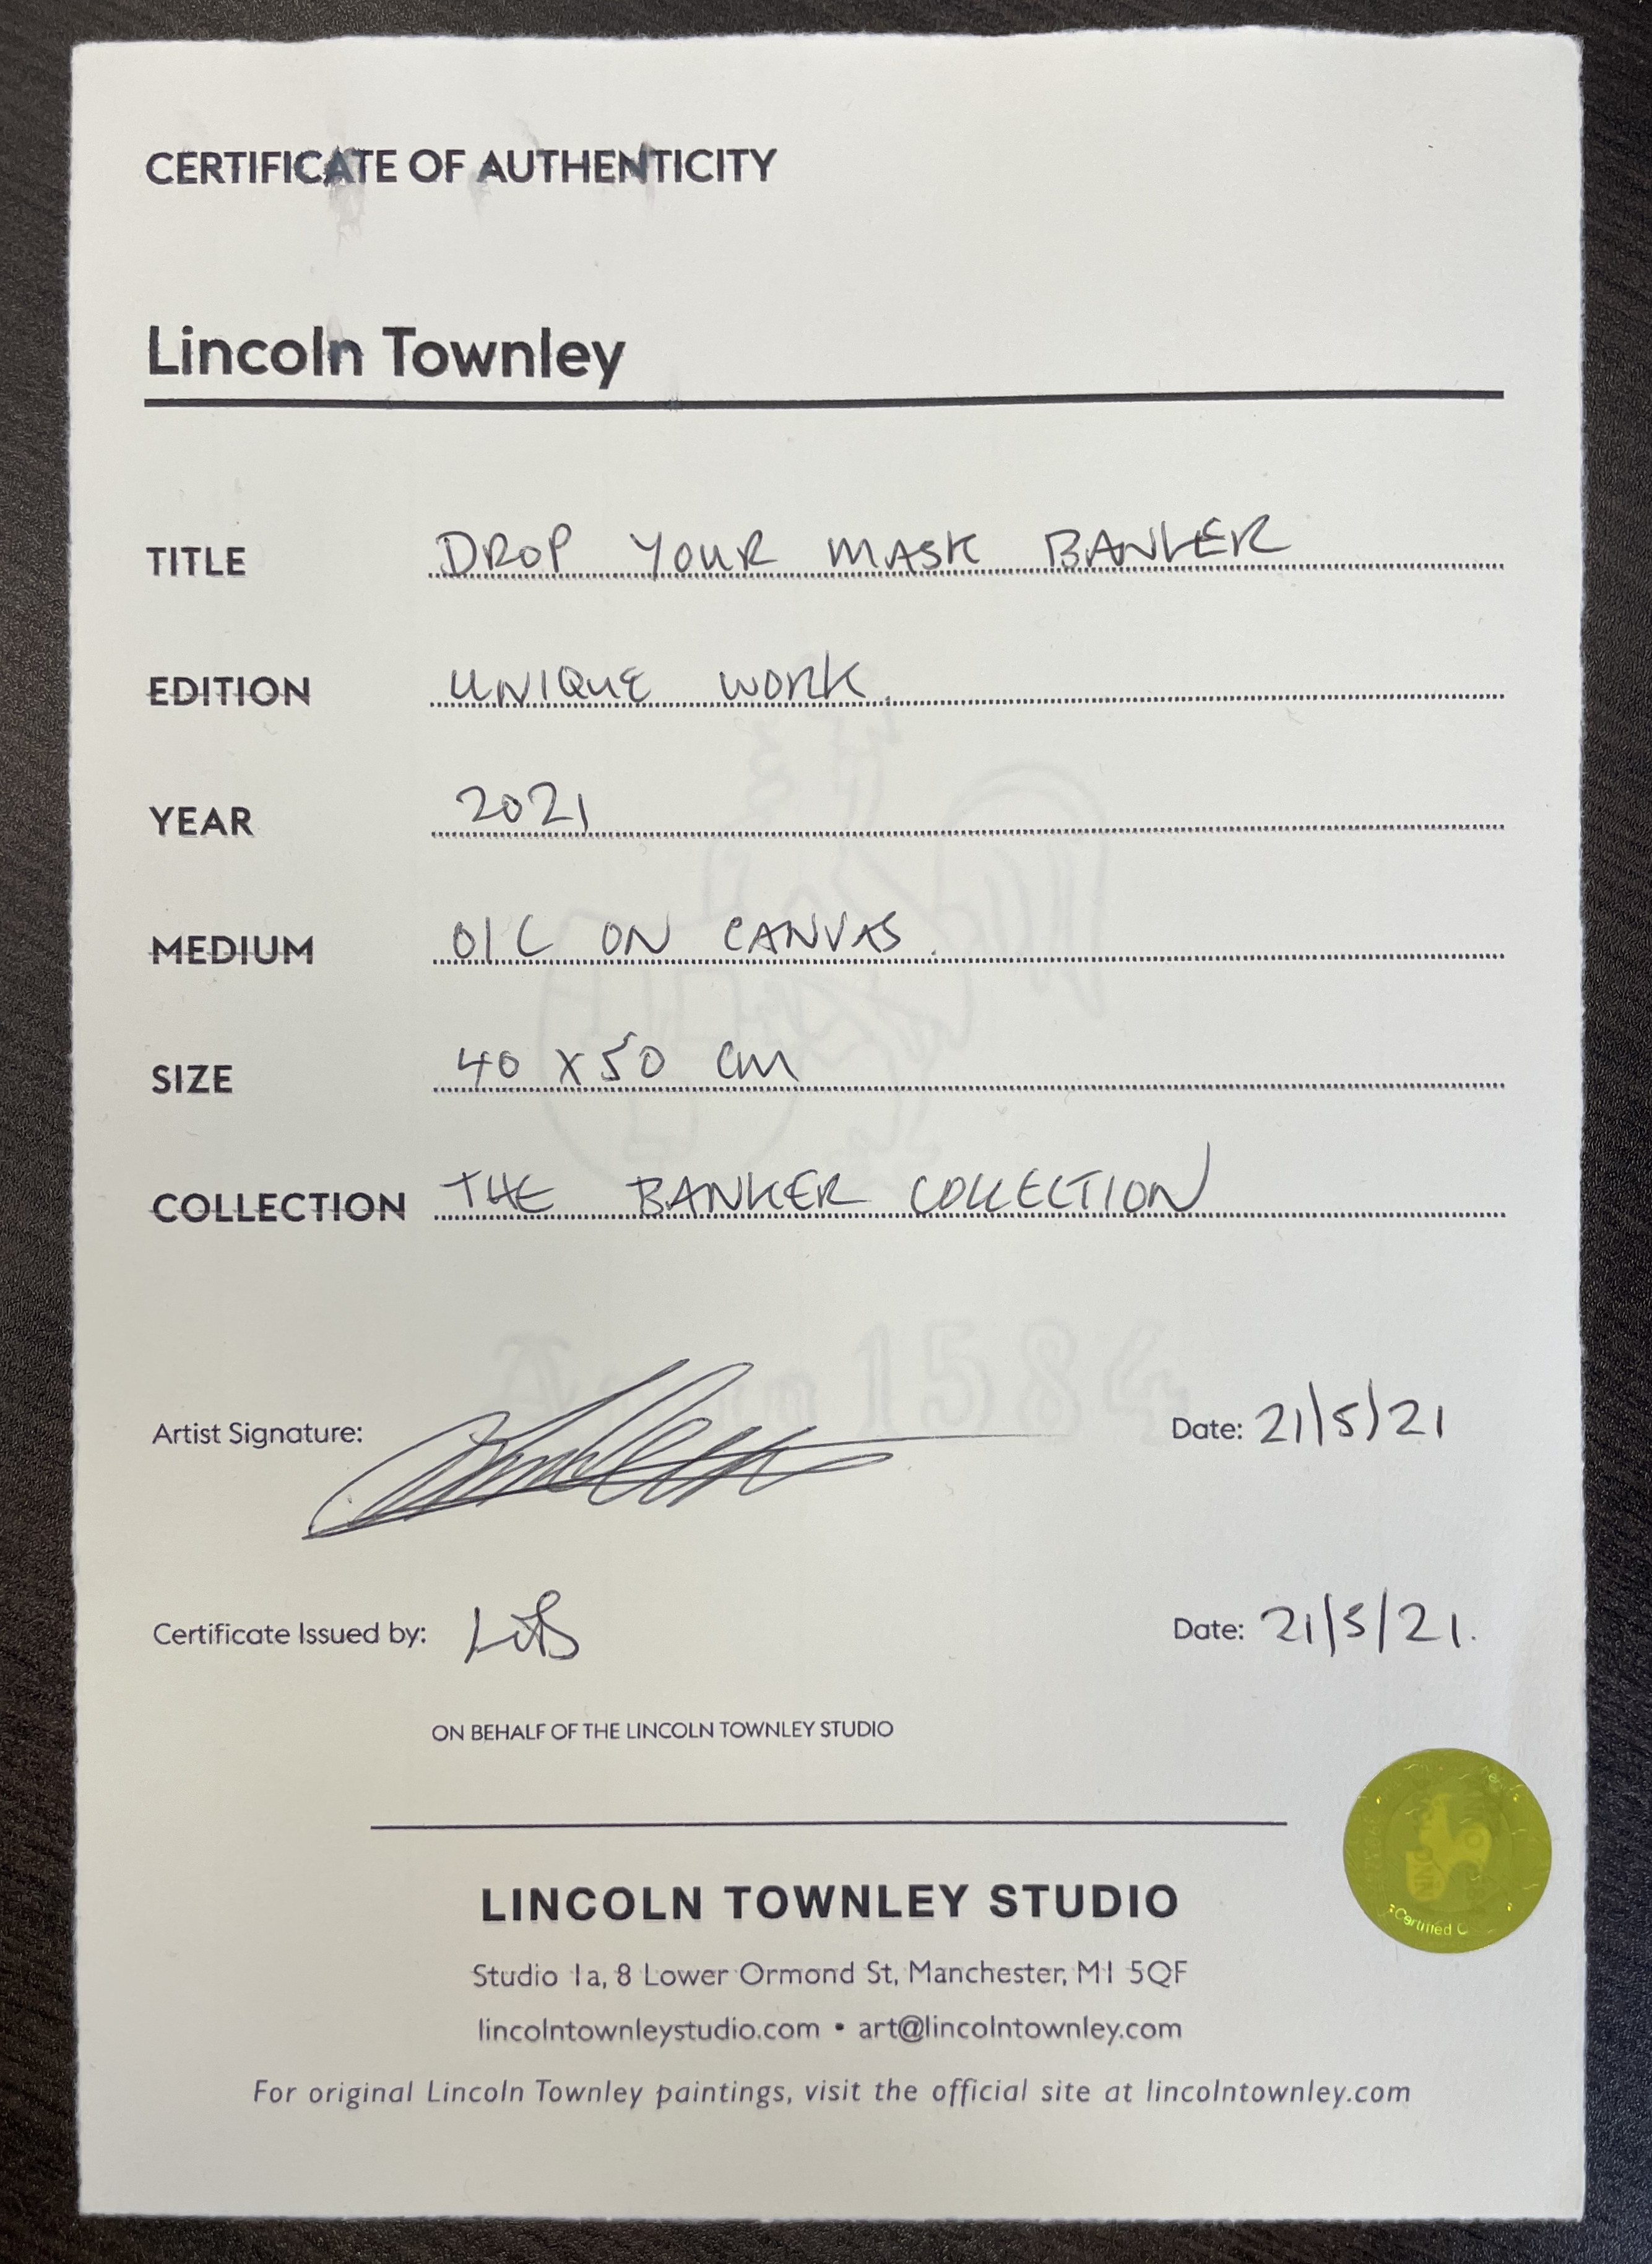 CERTIFICATE OF AUTHENTICITY
Lincoln Townley
TITLE DROP YOUR MASK BANKER
EDITION UNIQUE WORK.
YEAR 2021
MEDIUM OIL ON CANVAS.
SIZE 40 x 50 cm
COLLECTION THE BANKER COLLECTION
Anno 1584
Artist Signature: Date: 21/5/21
Certificate Issued by: Date: 21/5/21.
ON BEHALF OF THE LINCOLN TOWNLEY STUDIO
LINCOLN TOWNLEY STUDIO
Certified
Studio 1a, 8 Lower Ormond St, Manchester, M1 5QF
lincolntownleystudio.com • art@lincolntownley.com
For original Lincoln Townley paintings, visit the official site at lincolntownley.com